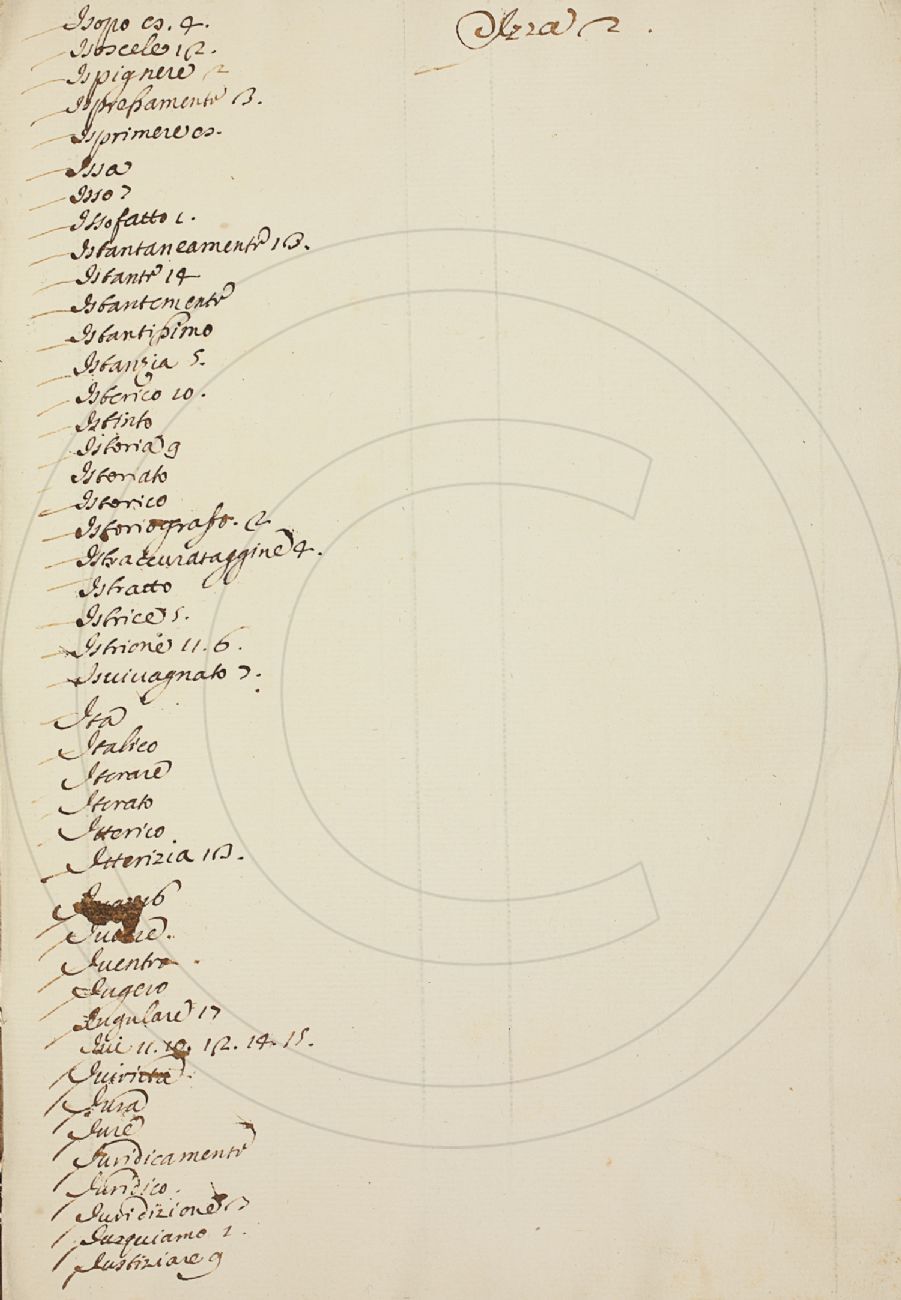 Isopo es. 4.
Isoscele 12.
Ispignere 2
Ispressamente 13.
Isprimere es.
Issa
Isso 7
Issofatto 1.
Istantaneamente 13.
Istante 14
Istantemente
Istantissimo
Istanzia 5.
Isterico 10.
Istinto
Istoria 9
Istoriato
Istorico
Istoriografo. 2
Istraccurataggine 4.
Istratto
Istrice 5.
Istrione 11. 6.
Isvivagnato 7.
Ita
Italico
Iterare
Iterato
Itterico
Itterizia 13.
Iuentro
Iugero
Iugulare 17
Iui 11. 12. 14. 15.
Iuiritta
Iura
Iure
Iuridicamente
Iuridico
Iuridizione 3
Iusquiamo 1.
Iustiziare 9
Izza 2.